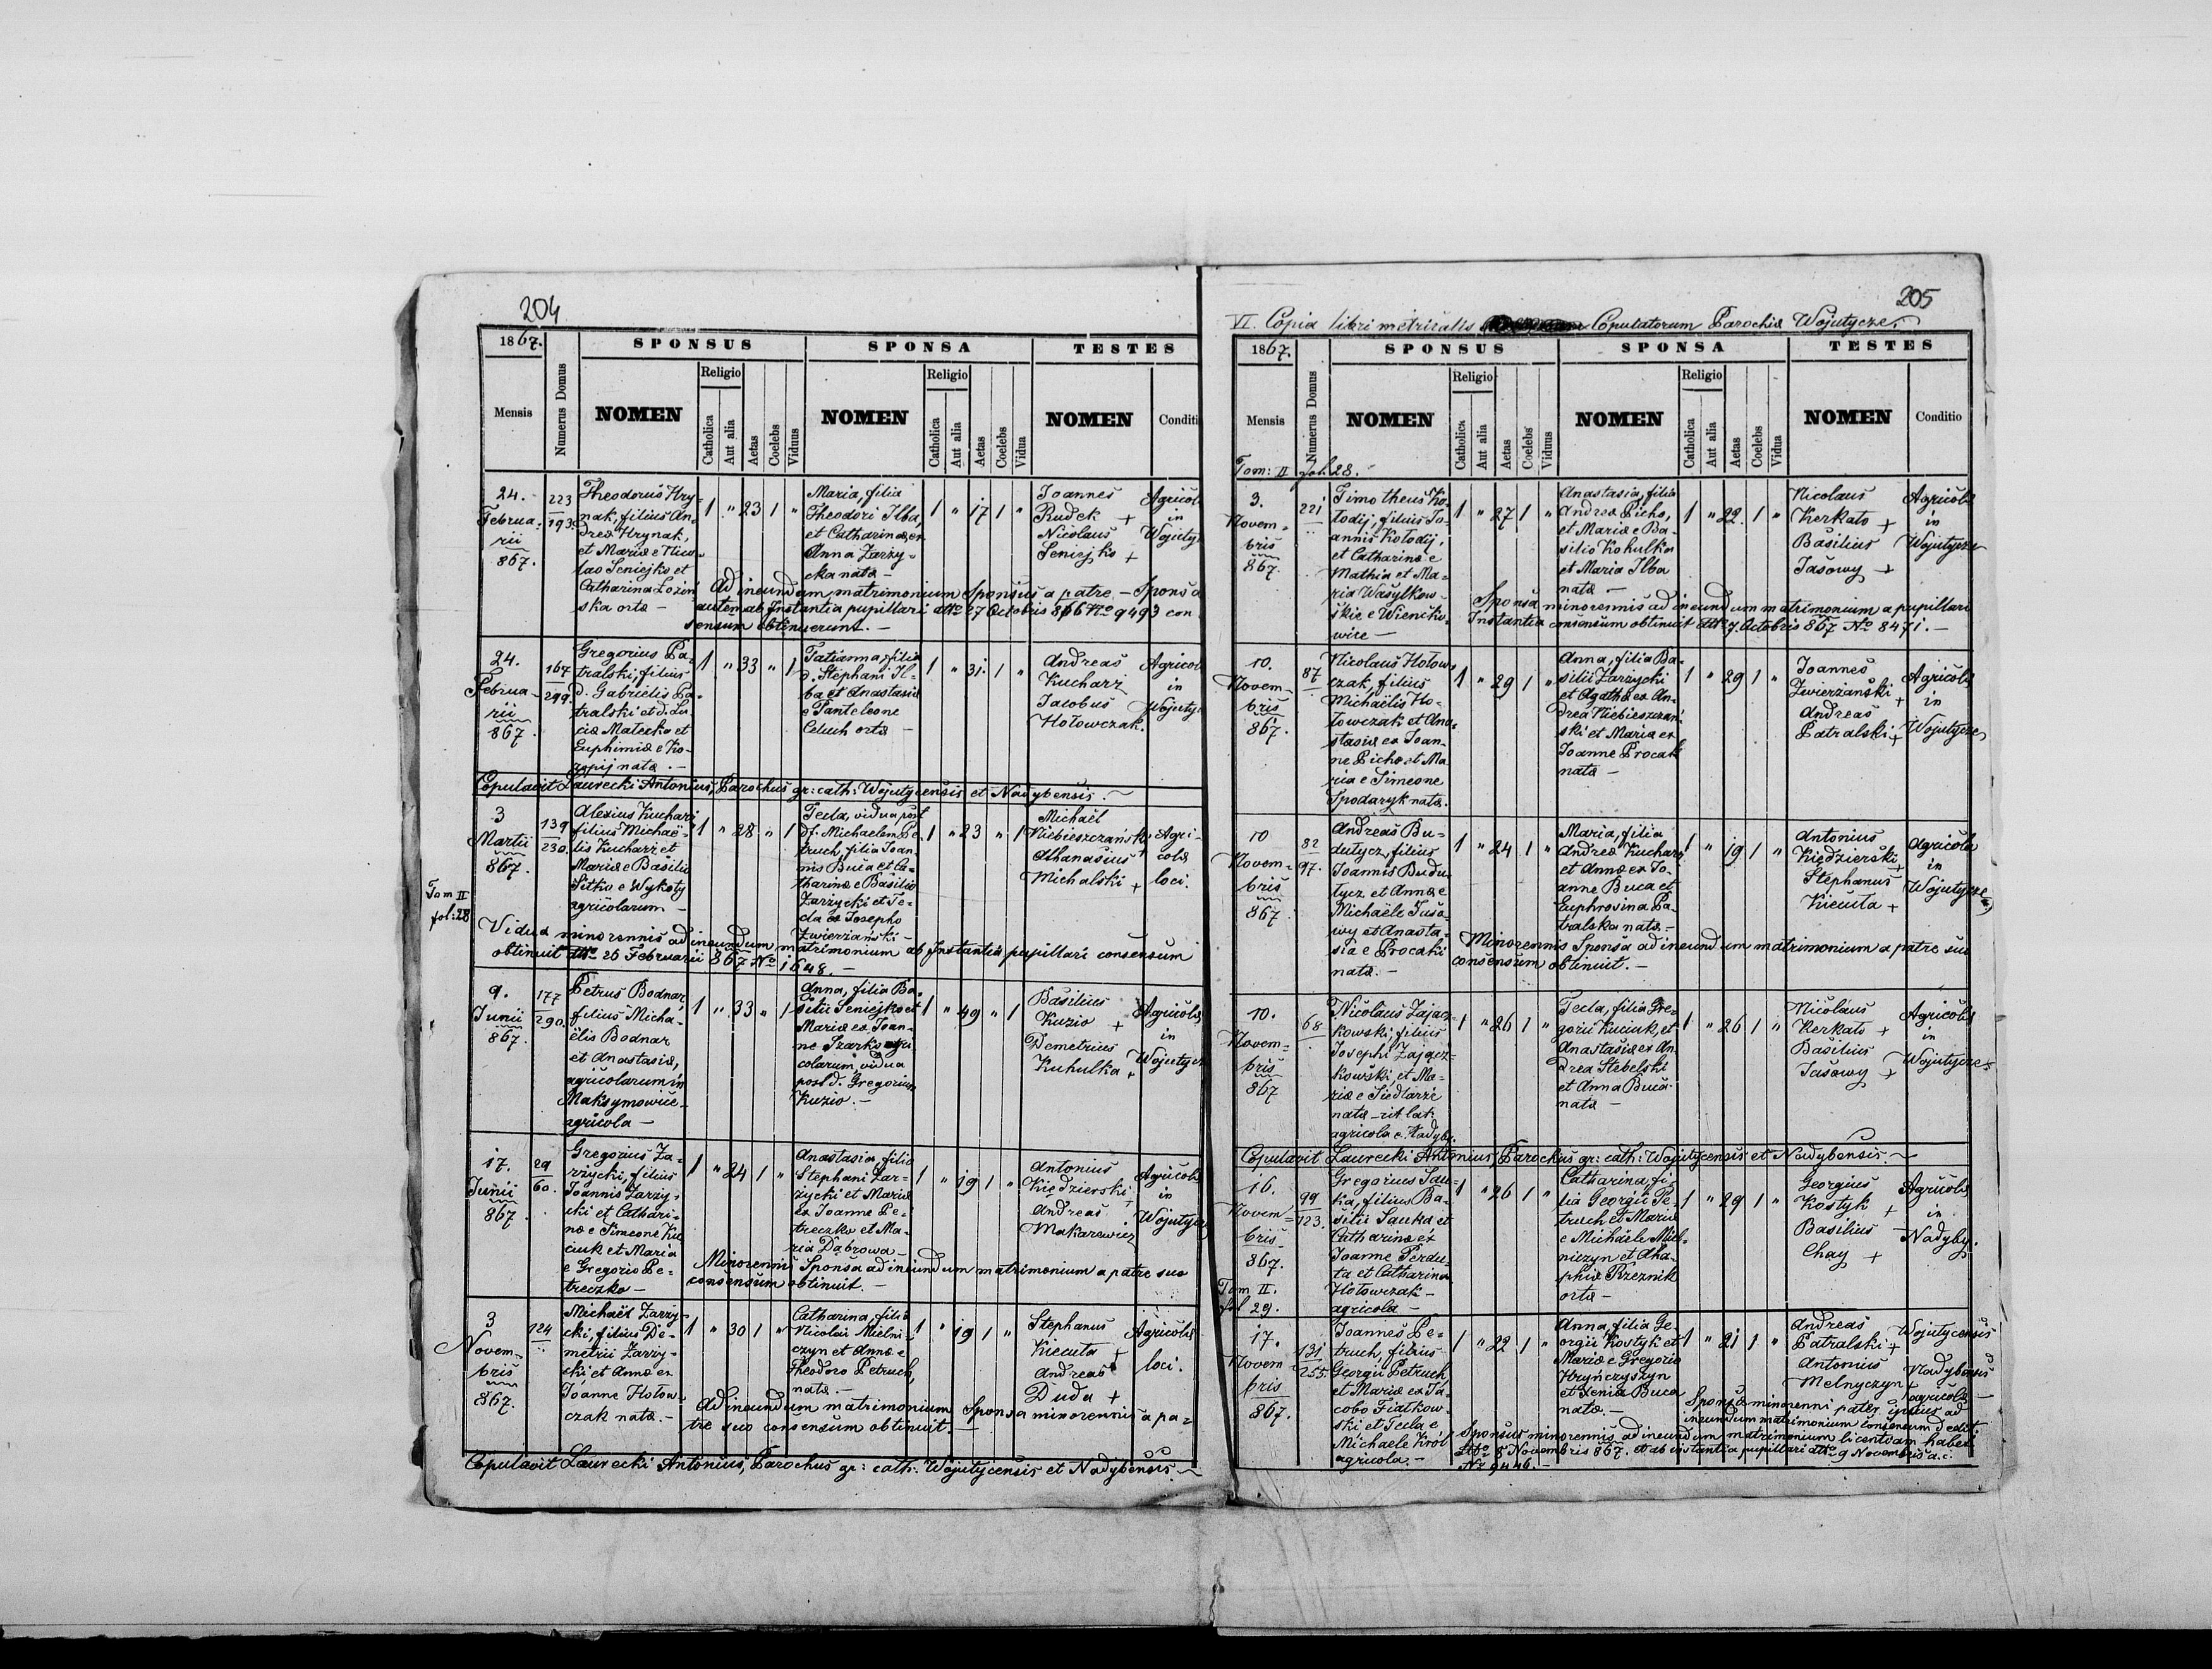 204
1867.
SPONSUS
SPONSA
TESTES
Mensis
Numerus Domus
NOMEN
Religio
Catholica
Aut alia
Aetas
Coelebs
Viduus
NOMEN
Religio
Catholica
Aut alia
Aetas
Coelebs
Vidua
NOMEN
Conditi
24.
Februa-
rii
867.
223
193.
Theodorus Hry-
nak, filius An-
dreæ Hrynak,
et Mariæ e Nico-
lao Seniejko et
Catharina Lozin-
ska ortæ –
1 " 23 1 "
Maria, filia
Theodori Ilba,
et Catharinæ ex
Anna Zarzy-
cka nata –
1 " 17 1 "
Joannes
Rudek +
Nicolaus
Seniejko +
Agricolæ
in
Wojuty
Ad ineundum matrimonium Sponsus a patre – Sponsa
autem ab Instantia pupillari dtto 27 Octobris 866 No 9493 con
sensum obtinuerunt. –
24.
Februa-
rii
867.
167
299.
Gregorius Pa-
tralski, filius
d. Gabrielis Pa-
tralski et d. Lu-
ciæ Matecko et
Euphimiæ e Ko-
nopij natæ. –
1 " 33 " 1
Tatianna, filia
d. Stephani Il-
ba et Anastasiæ
e Panteleone
Celuch ortæ –
1 " 31. 1 "
Andreas
Kucharz
Jacobus
Hołowczak.
Agricol
in
Wojuty
Copulavit Laurecki Antonius, Parochus gr: cath: Wojutycensis et Nadybensis.
3
Martii
867.
139
230.
Alexius Kucharz
filius Michaë-
lis Kucharz et
Mariæ e Basilio
Sitko e Wykoty
agricolarum –
1 " 28 " 1
Tecla, vidua post
df. Michaelem Pe-
truch, filia Joan-
nis Buca et Ca-
tharinæ e Basilio
Zarzycki et Te-
cla ex Josepho
Zwierzański –
1 " 23 " 1
Michaël
Niebieszczański
Athanasius +
Michalski +
Agri-
colæ
loci.
Tom II
fol: 28
Vidua minorennis ad ineundum matrimonium ab Instantia pupillari consensum
obtinuit dtto 26 Februarii 867 No 1648. –
9.
Junii
867.
177
290.
Petrus Bodnar,
filius Micha-
ëlis Bodnar
et Anastasiæ,
agricolarum in
Maksymowice –
agricola –
1 " 33 " 1
Anna, filia Ba-
silii Seniejko et
Mariæ ex Joan-
ne Szarko agri
colarum, vidua
post d. Gregorium
Kuzio. –
1 " 49 " 1
Basilius
Kuzio +
Demetrius
Kuhulka +
Agricolæ
in
Wojutyce
17.
Junii
867.
29
60.
Gregorius Za-
rzycki, filius
Joannis Zarzy-
cki et Cathari-
næ e Simeone Ku
ciuk et Maria
e Gregorio Pe-
treczko –
1 " 24 1 "
Anastasia, filia
Stephani Zar-
zycki et Mariæ
ex Joanne Pe-
treczko et Ma-
ria Dąbrowa –
1 " 19 1 "
Antonius
Kiędzierski
Andreas +
Makarewicz
Agricolæ
in
Wojutyc
Minorennis Sponsa ad ineundum matrimonium a patre suo
consensum obtinuit. –
3
Novem-
bris
867.
124
Michaël Zarzy-
cki, filius De-
metrii Zarzy-
cki et Annæ ex
Joanne Hołow-
czak natæ. –
1 " 30 1 "
Catharina, filia
Nicolai Mielni-
czyn et Annæ e
Theodoro Petruch,
natæ. –
1 " 19 1 "
Stephanus
Kiecuta +
Andreas
Duda +
Agricolæ
loci.
Ad ineundum matrimonium Sponsa minorennis a pa-
tre suo consensum obtinuit. –
Copulavit Laurecki Antonius, Parochus gr: cath: Wojutycensis et Nadybensis.
205
VI. Copia libri metricalis Copulatorum Parochiæ Wojutycze.
1867.
SPONSUS
SPONSA
TESTES
Mensis
Numerus Domus
NOMEN
Religio
Catholica
Aut alia
Aetas
Coelebs
Viduus
NOMEN
Religio
Catholica
Aut alia
Aetas
Coelebs
Vidua
NOMEN
Conditio
Tom: II fol. 28. –
3.
Novem-
bris
867.
221
Timotheus Ko-
łodij, filius Jo-
annis Kołodij,
et Catharinæ e
Mathia et Ma-
ria Wasylkow-
skie e Wiencko-
wice –
1 " 27 1 "
Anastasia, filia
Andreæ Picho,
et Mariæ e Ba-
silio Kohulka
et Maria Ilba
natæ –
1 " 22. 1 "
Nicolaus
Kerkało +
Basilius
Jasowy +
Agricolæ
in
Wojutycze
Sponsa minorennis ad ineundum matrimonium a pupillari
Instantia consensum obtinuit dtto 7 Octobris 867 No 8471. –
10.
Novem-
bris
867.
87
Nicolaus Hołow-
czak, filius
Michaëlis Ho-
łowczak et Ana-
stasiæ ex Joan-
ne Picho et Ma
ria e Simeone
Spodaryk natæ.
1 " 29 1 "
Anna, filia Ba-
silii Zarzycki
et Agathæ ex An-
drea Niebieszczań-
ski et Maria ex
Joanne Procak
natæ –
1 " 29 1 "
Joannes
Zwierzański
Andreas +
Patralski +
Agricolæ
in
Wojutycze
10
Novem-
bris
867.
82
97.
Andreas Bu-
dutycz, filius
Joannis Budu
tycz et Annæ e
Michaële Juso-
wy et Anasta-
sia e Procaki
natæ. –
1 " 24 1 "
Maria, filia
Andreæ Kucharz
et Annæ ex Jo-
anne Buca et
Euphrosina Pa-
tralska natæ. –
1 " 19 1 "
Antonius
Kiędzierski
Stephanus
Kiecuta +
Agricolæ
in
Wojutycze
Minorennis Sponsa ad ineundum matrimonium a patre suo
consensum obtinuit. –
10.
Novem-
bris
867
68
Nicolaus Zającz-
kowski, filius
Josephi Zającz-
kowski et Ma-
riæ e Siedlarze
natæ – rit lat.
agricola e Nadyby.
1 " 26 1 "
Tecla, filia Gre-
gorii Kuciuk, et
Anastasiæ ex An-
drea Stebelski
et Anna Buca
natæ –
1 " 26 1 "
Nicolaus
Kerkało +
Basilius
Jasowy +
Agricolæ
in
Wojutycze
Copulavit Laurecki Antonius, Parochus gr: cath: Wojutycensis et Nadybensis.
16.
Novem-
bris
867.
Tom II.
fol 29.
99
123.
Gregorius Sau-
ka, filius Ba-
silii Sauka et
Catharinæ ex
Joanne Perdu-
ta et Catharina
Hołowczak –
agricola –
1 " 26 1 "
Catharina, fi-
lia Georgii Pe-
truch et Mariæ
e Michaële Miel-
niczyn et Aha-
phia Rzeznik
ortæ –
1 " 29 1 "
Georgius
Kostyk +
Basilius
Chay +
Agricolæ
in
Nadyby.
17.
Novem-
bris
867.
131
255.
Joannes Pe-
truch, filius
Georgii Petruch
et Mariæ ex Ja-
cobo Fiatkow-
ski et Tecla e
Michaele Król
agricola. –
1 " 22 1 "
Anna, filia Ge-
orgii Kostyk et
Mariæ e Gregorio
Hryńczyszyn
et Xenia Buca
natæ. –
1 " 21 1 "
Andreas
Patralski +
Antonius
Melnyczyn +
Wojutycensis
Nadybensis
agricolæ –
Sponsæ minorenni pater ipsius ad
ineundum matrimonium consensum dedit.
Sponsus minorennis ad ineundum matrimonium licentiam habet
dtto 8 Novembris 867. et ab instantia pupillari dtto 9 Novembris a. c.
No 9446. –